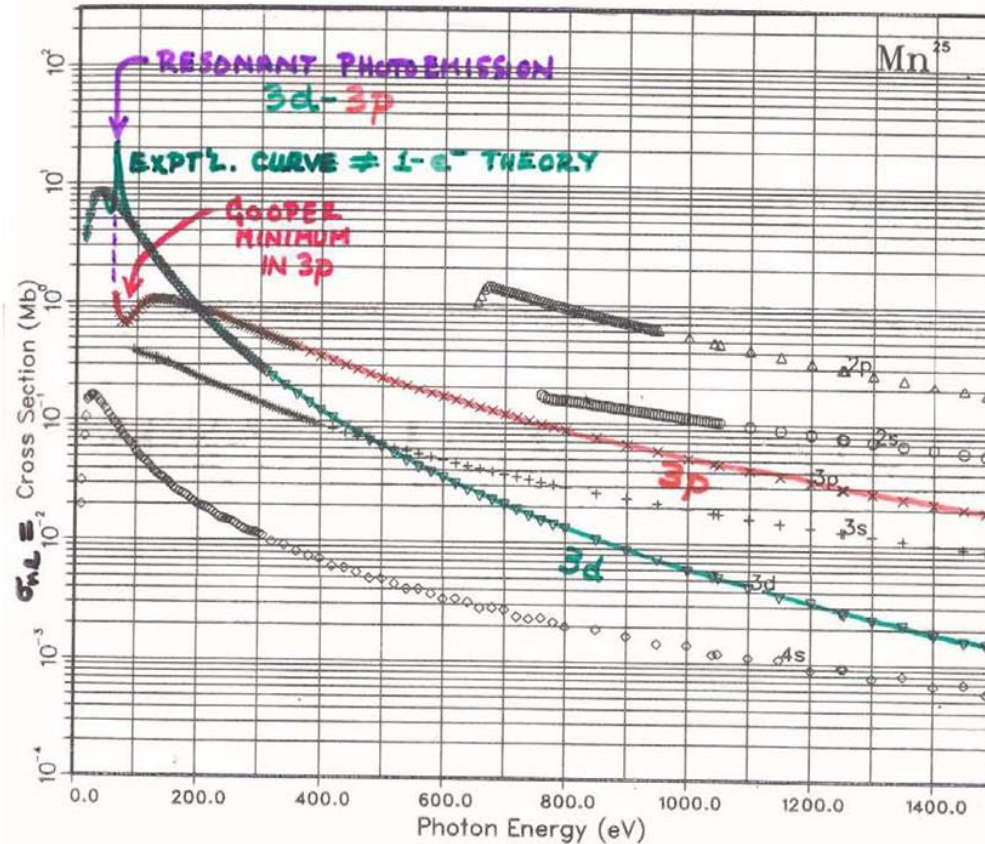 Mn²⁵
RESONANT PHOTOEMISSION
3d-3p
EXPT'L. CURVE ≠ 1-e⁻ THEORY
COOPER
MINIMUM
IN 3p
σnℓ ≡ Cross Section (Mb)
10²
10¹
10⁰
10⁻¹
10⁻²
10⁻³
10⁻⁴
2p
2s
3p
3p
3s
3d
3d
4s
0.0 200.0 400.0 600.0 800.0 1000.0 1200.0 1400.0
Photon Energy (eV)